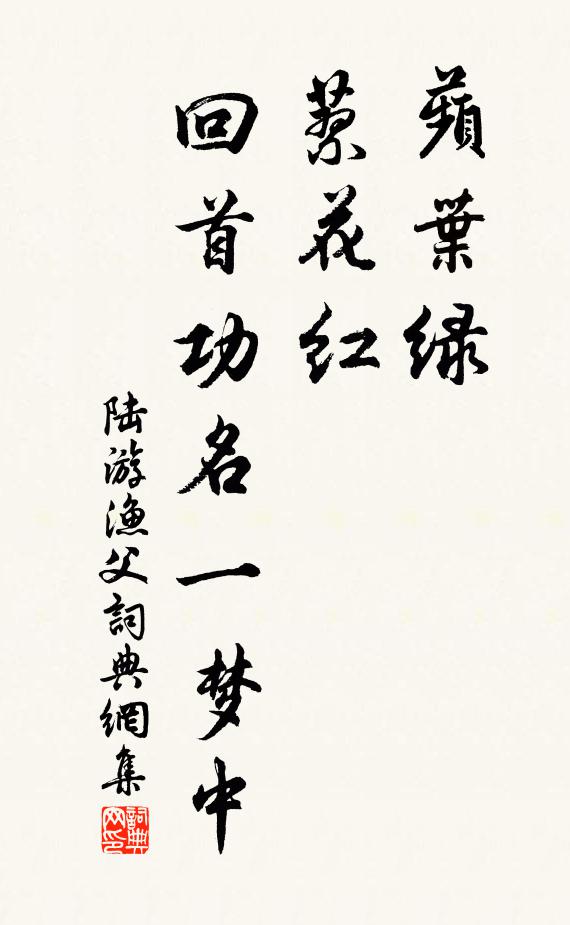 蘋葉绿
蓼花红
回首功名一梦中
陆游渔父詞典網集
詞典网印